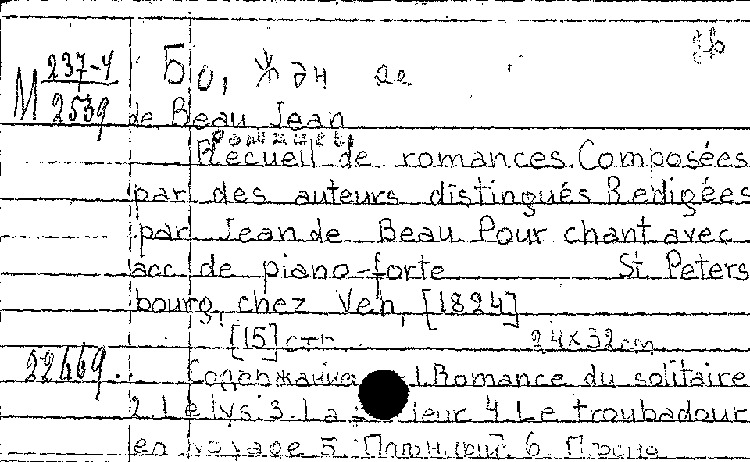 М 237-У
2539
Бо, Жан де
de Beau Jean
Романсы
Recueil de romances. Composées
par des auteurs distingués Redigées
par Jean de Beau. Pour chant avec
acc. de piano-forte St. Peters
bourg, chez Veh, [1824]
[15] стр. 24х32 cm
22669. Содержание 1. Romance du solitaire
2. Le lys 3. La 4. Le troubadour
en voyage 5. 6.